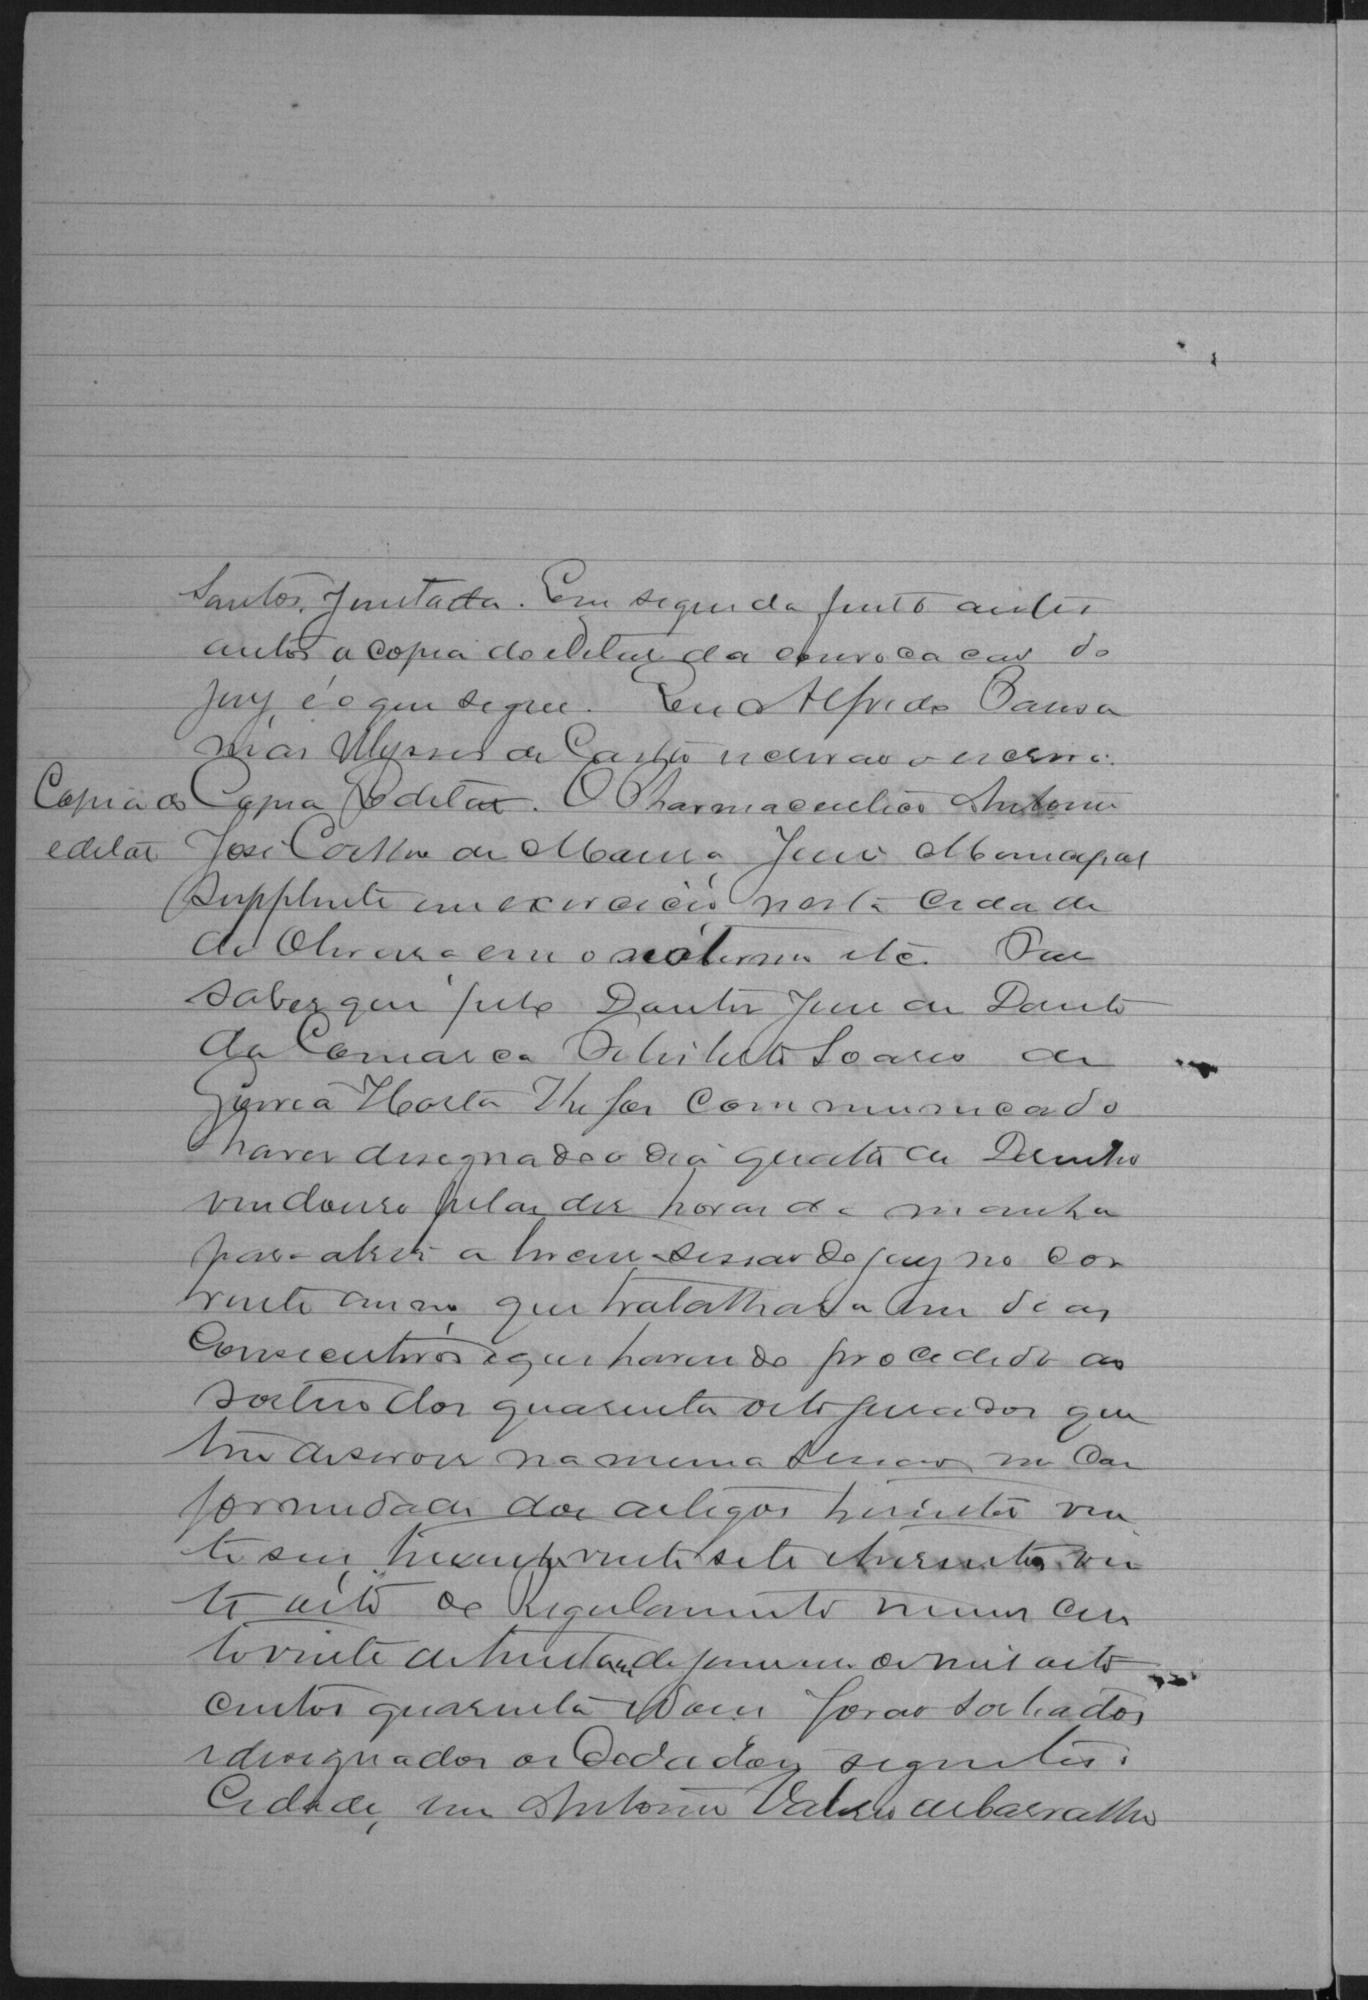 Santos. Juntada. Em seguida junto a estes
autos a copia do edital da convocacao do
jury, é o que segue. Eu Alfredo Pausa
nias Ulysses de Castro escrivao o escrevi.
Copia do Copia Edital. O Pharmaceutico Antonio
edital José Coelho de Moura, Juiz Municipal
Supplente em exercicio nesta Cidade
de Oliveira e em o seo termo etc. Faz
saber que pelo Doutor Juiz de Direito
da Comarca Soares de
Gouvea Horta lhe foi communicado
haver designado o dia quatro de Dezembro
vindouro pelas dez horas da manha
para abrir a sessao do jury no cor
rente anno, que trabalhará em dias
consecutivos e que havendo procedido ao
sorteio dos quarenta oito jurados que
tem de servir na mesma sessao, na con
formidade dos artigos trezentos vin
te seis, trezentos vinte sete e trezentos vin
te oito do Regulamento numero cen
to vinte de trinta um de janeiro de mil oito
centos quarenta e dous forao sorteados
e designados os Cidadãos seguintes:
Cidade, Antonio de Carvalho